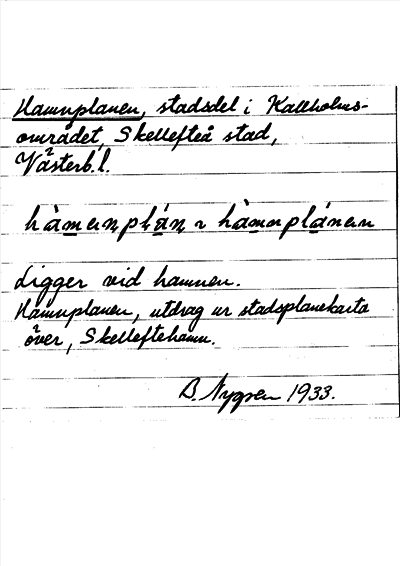 Hamnplanen, stadsdel i Kallholms-
området, Skellefteå stad,
Västerb. l.
hàmenplán ~ hàmnplánen
Ligger vid hamnen.
Hamnplanen, utdrag ur stadsplanekarta
över, Skelleftehamn.
B. Nygren 1933.